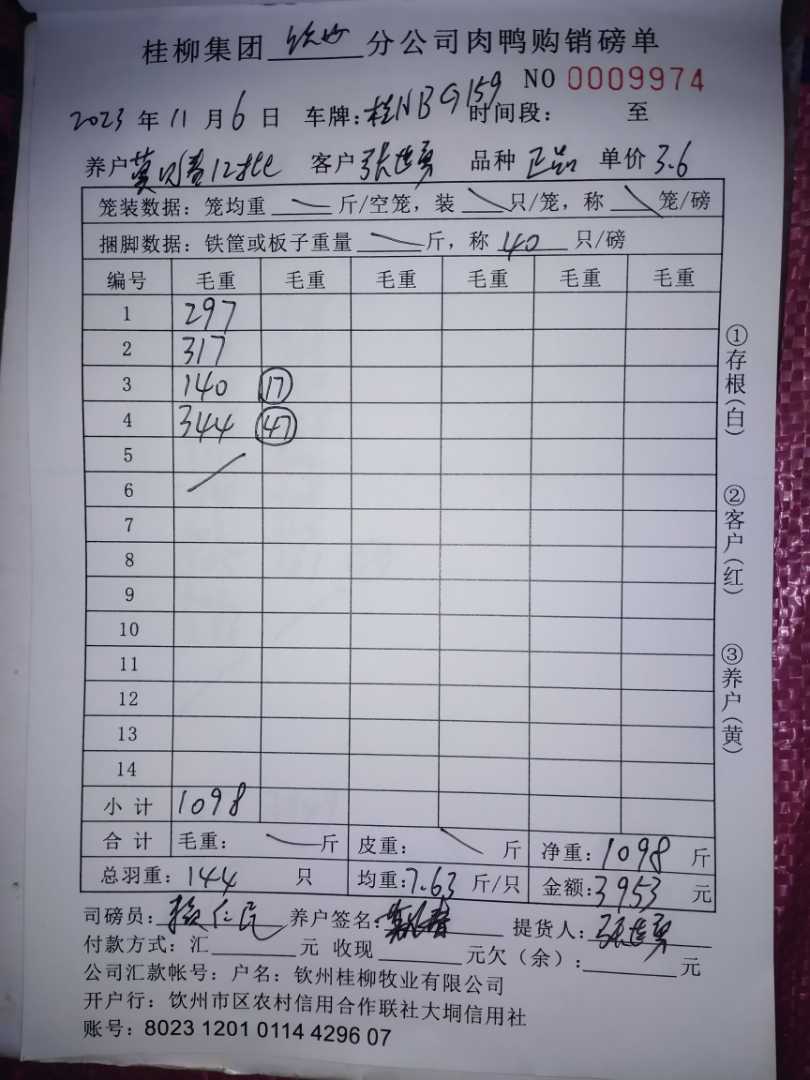 桂柳集团 钦州 分公司肉鸭购销磅单
NO 0009974
2023 年 11 月 6 日 车牌:桂NBG159 时间段: 至
养户 12批 客户 张 勇 品种 正品 单价 3.6
笼装数据:笼均重 斤/空笼,装 只/笼,称 笼/磅
捆脚数据:铁筐或板子重量 斤,称 40 只/磅
编号 毛重 毛重 毛重 毛重 毛重 毛重
1 297
2 317
3 140 17
4 344 47
5
6
7
8
9
10
11
12
13
14
小计 1098
合计 毛重: 斤 皮重: 斤 净重:1098 斤
总羽重:144 只 均重:7.63 斤/只 金额:3953 元
司磅员: 养户签名: 提货人:张 勇
付款方式:汇 元 收现 元欠(余): 元
公司汇款帐号:户名:钦州桂柳牧业有限公司
开户行:饮州市区农村信用合作联社大垌信用社
账号:8023 1201 0114 4296 07
①存根(白)
②客户(红)
③养户(黄)